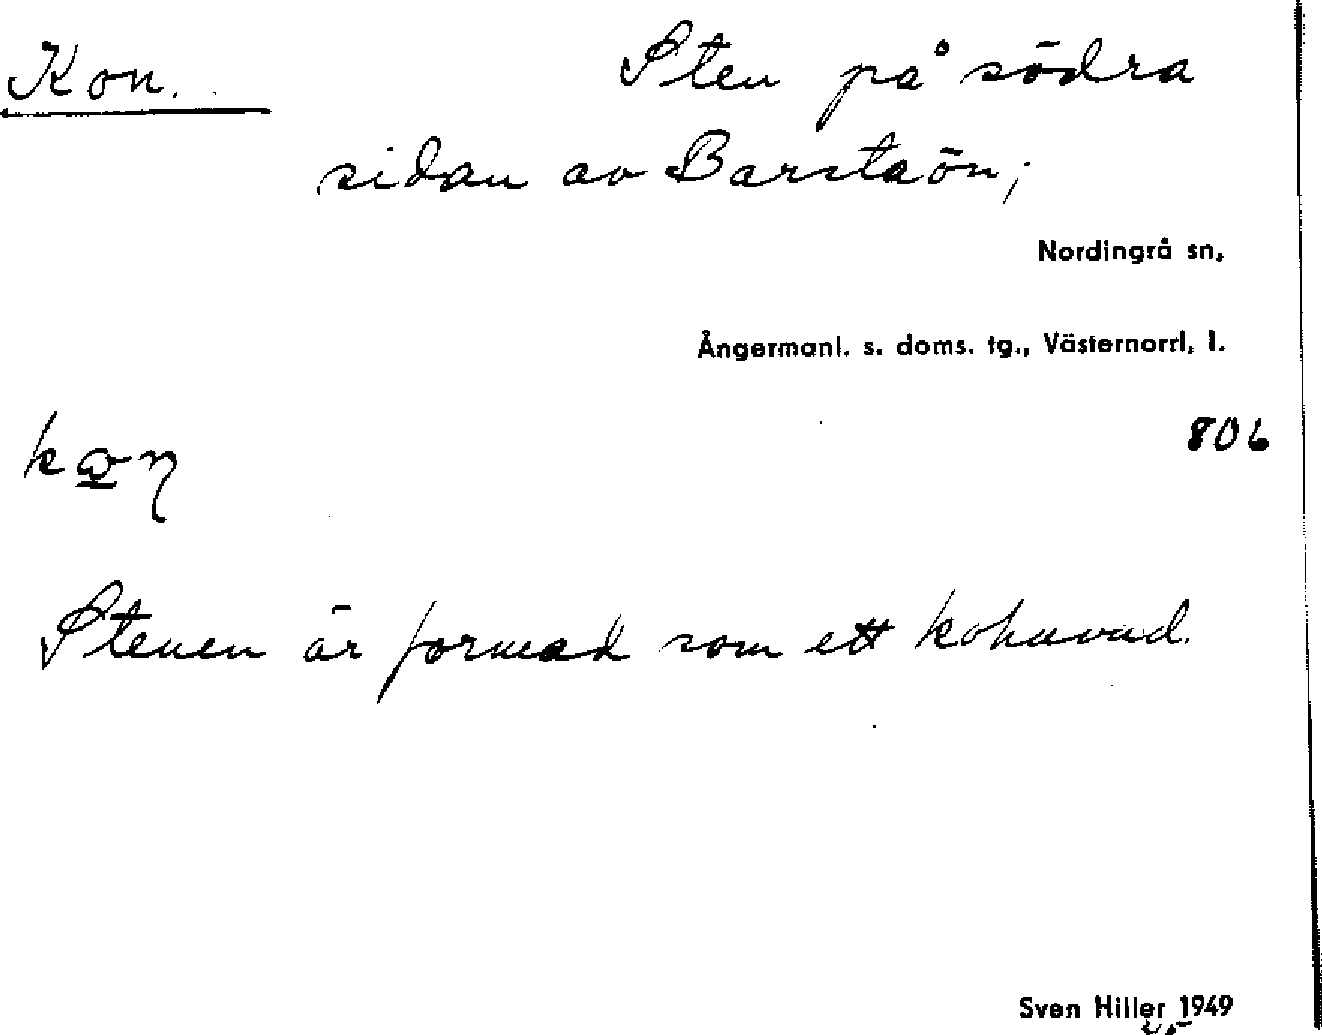 Kon. Sten på södra
sidan av Barstaön;
Nordingrå sn,
Ångermanl. s. doms. tg., Västernorrl. l.
806
Stenen är formad som ett kohuvud.
Sven Hiller 1949